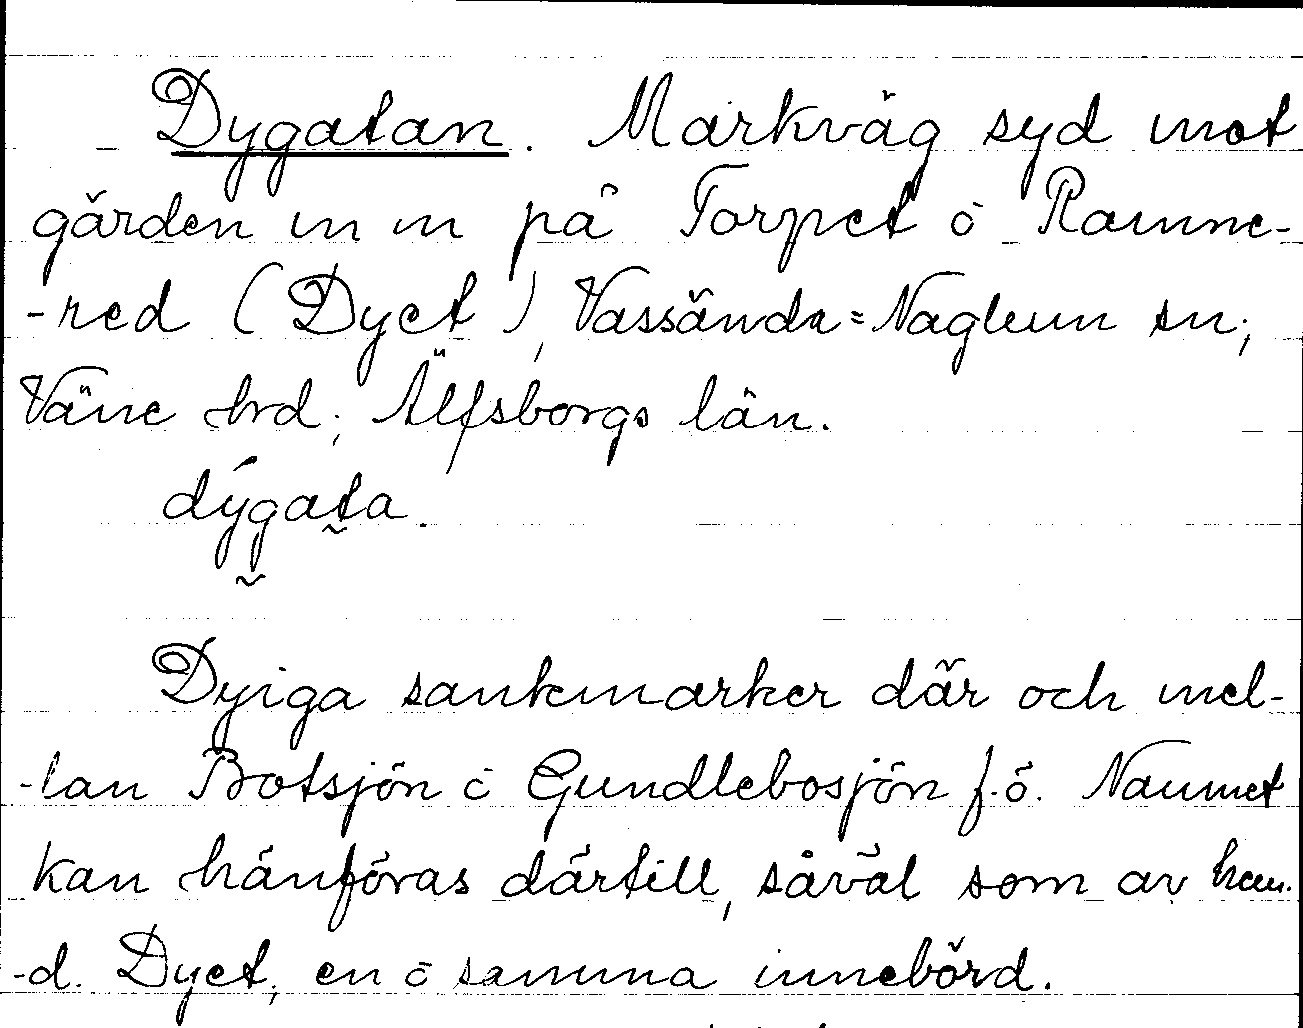 Dygatan. Markväg syd mot
gården m m på Torpet ō Ramne-
-red (Dyet), Vassända=Naglum sn;
Väne hrd; Älfsborgs län.
dýgata.
Dyiga sankmarker där och mel-
-lan Botsjön ō Gundlebosjön f.ö. Namnet
kan hänföras därtill, såväl som av
-d. Dyet, en ō samma innebörd.